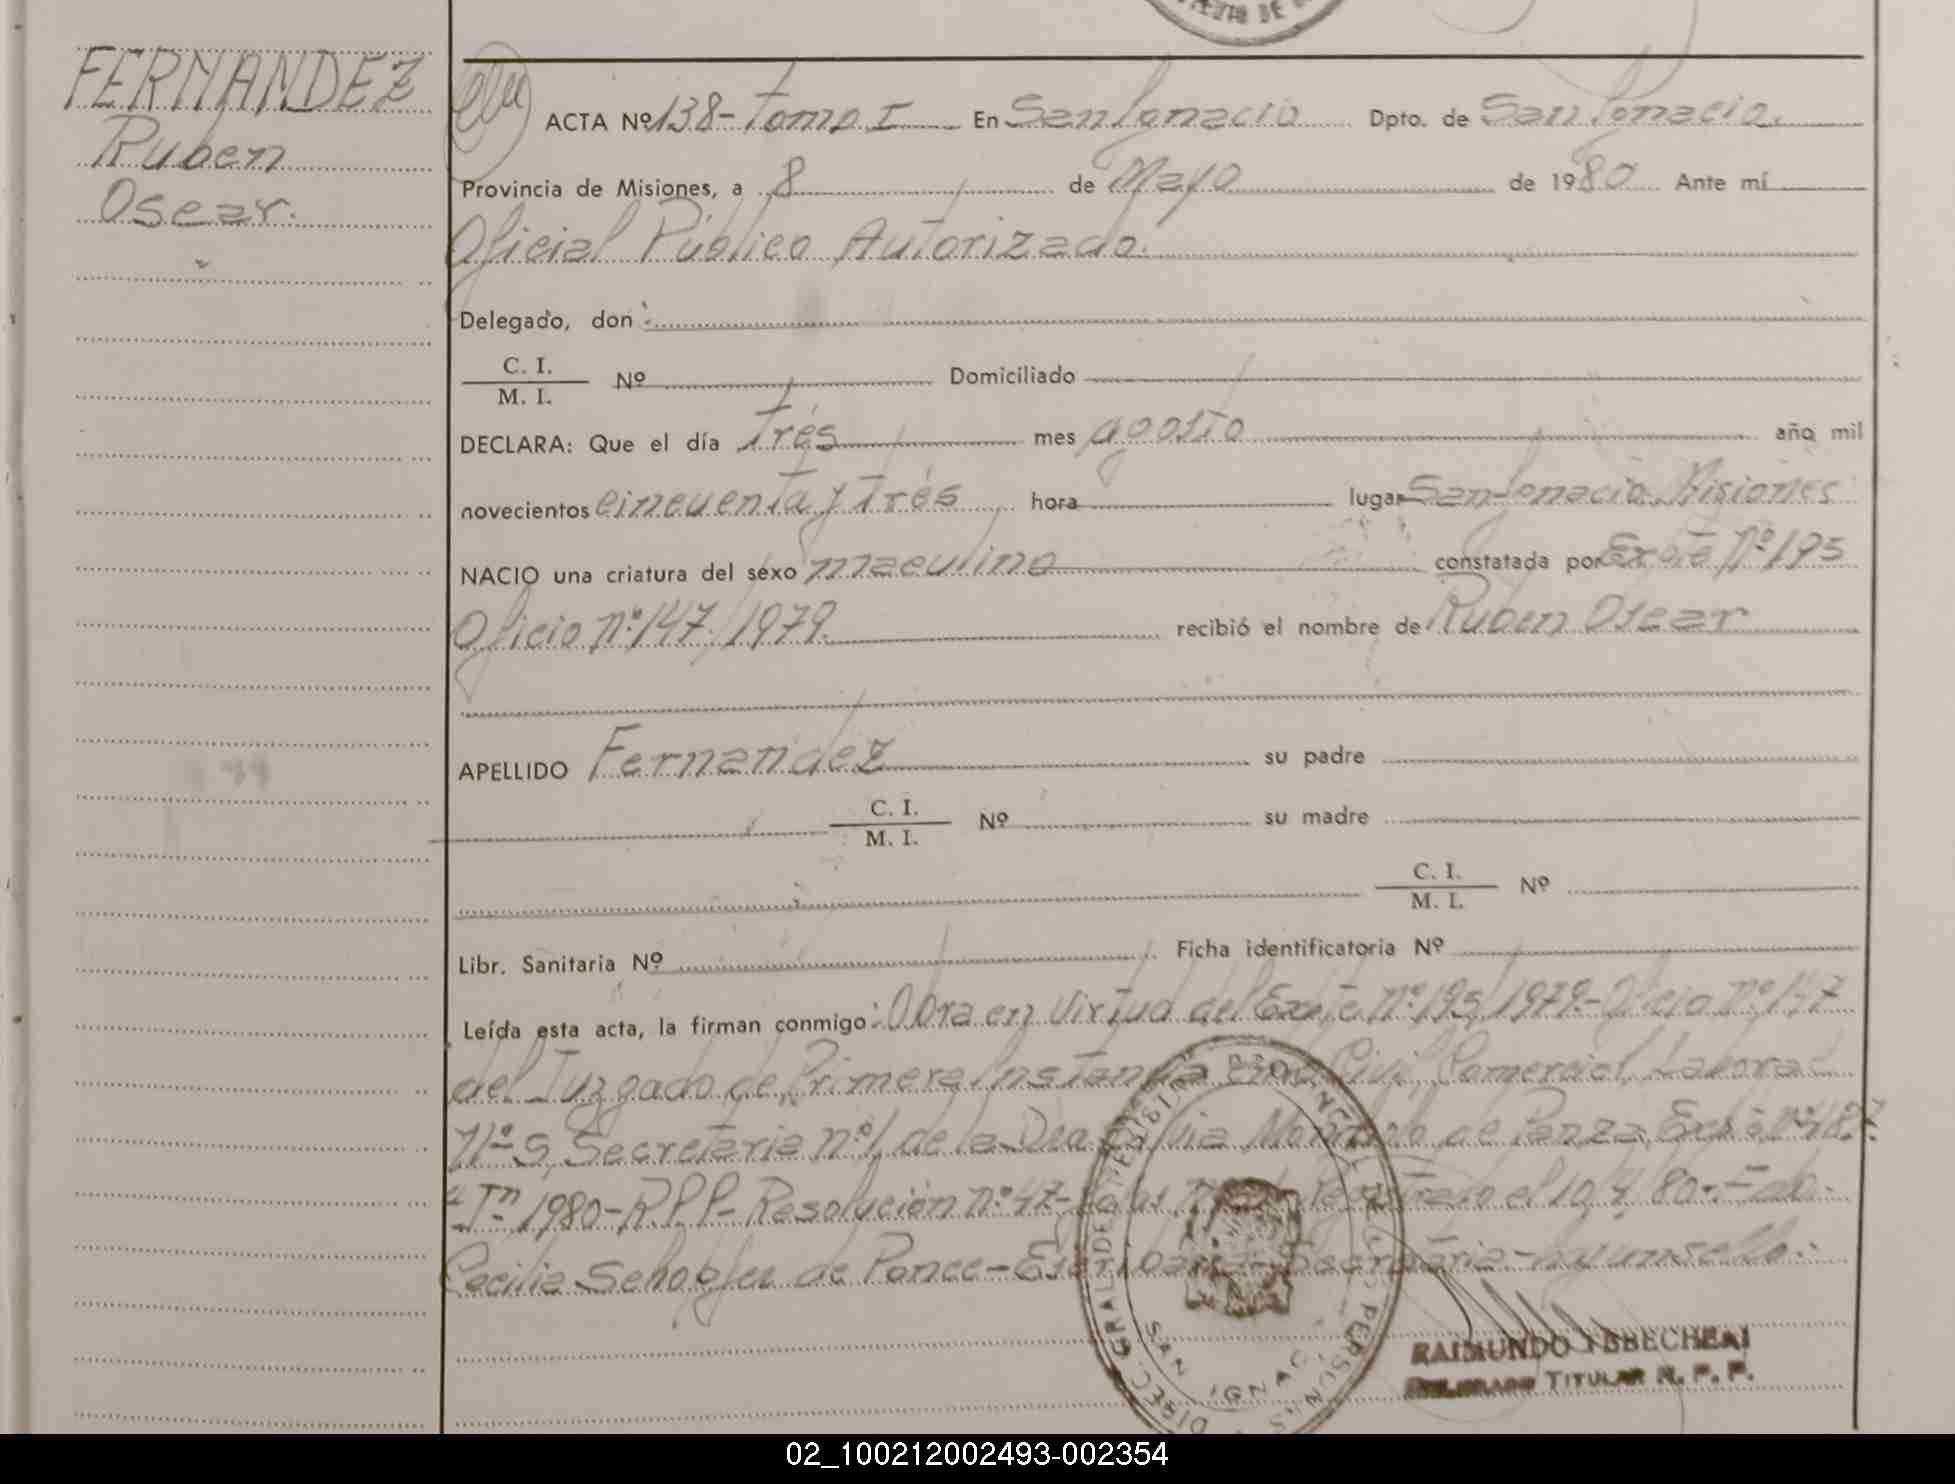 FERNANDEZ
Ruben
Osear.
ACTA Nº 138 - Tomo I En San Ignacio Dpto. de San Ignacio.
Provincia de Misiones, a 8 de Mayo de 1980 Ante mí
Oficial Público Autorizado.
Delegado, don
C. I.
M. I. Nº Domiciliado
DECLARA: Que el día Trés mes agosto año mil
novecientos cincuenta y Trés hora lugar San Ignacio Misiones
NACIO una criatura del sexo maculino constatada por Expte Nº 195
Oficio nº 147. 1979. recibió el nombre de Ruben Osear
APELLIDO Fernandez su padre
C. I.
M. I. Nº su madre
C. I.
M. I. Nº
Libr. Sanitaria Nº Ficha identificatoria Nº
Leída esta acta, la firman conmigo: Obra en Virtud del Expte Nº 195/1979.- Oficio Nº 147
del Juzgado de Primera Instancia en lo Civil, Comercial, Laboral
Secretaria nº 1, de la Dra de Panza, Expte
1980 - R.P.P - Resolución nº 47- Registrado el 10 4 80.- Fdo.
Cecilia de Ponce - Escribana - Secretaria - hay un sello.-
DIREC. GRAL. DE
SAN IGNACIO
RAIMUNDO
TITULAR R. P. P.
02_100212002493-002354